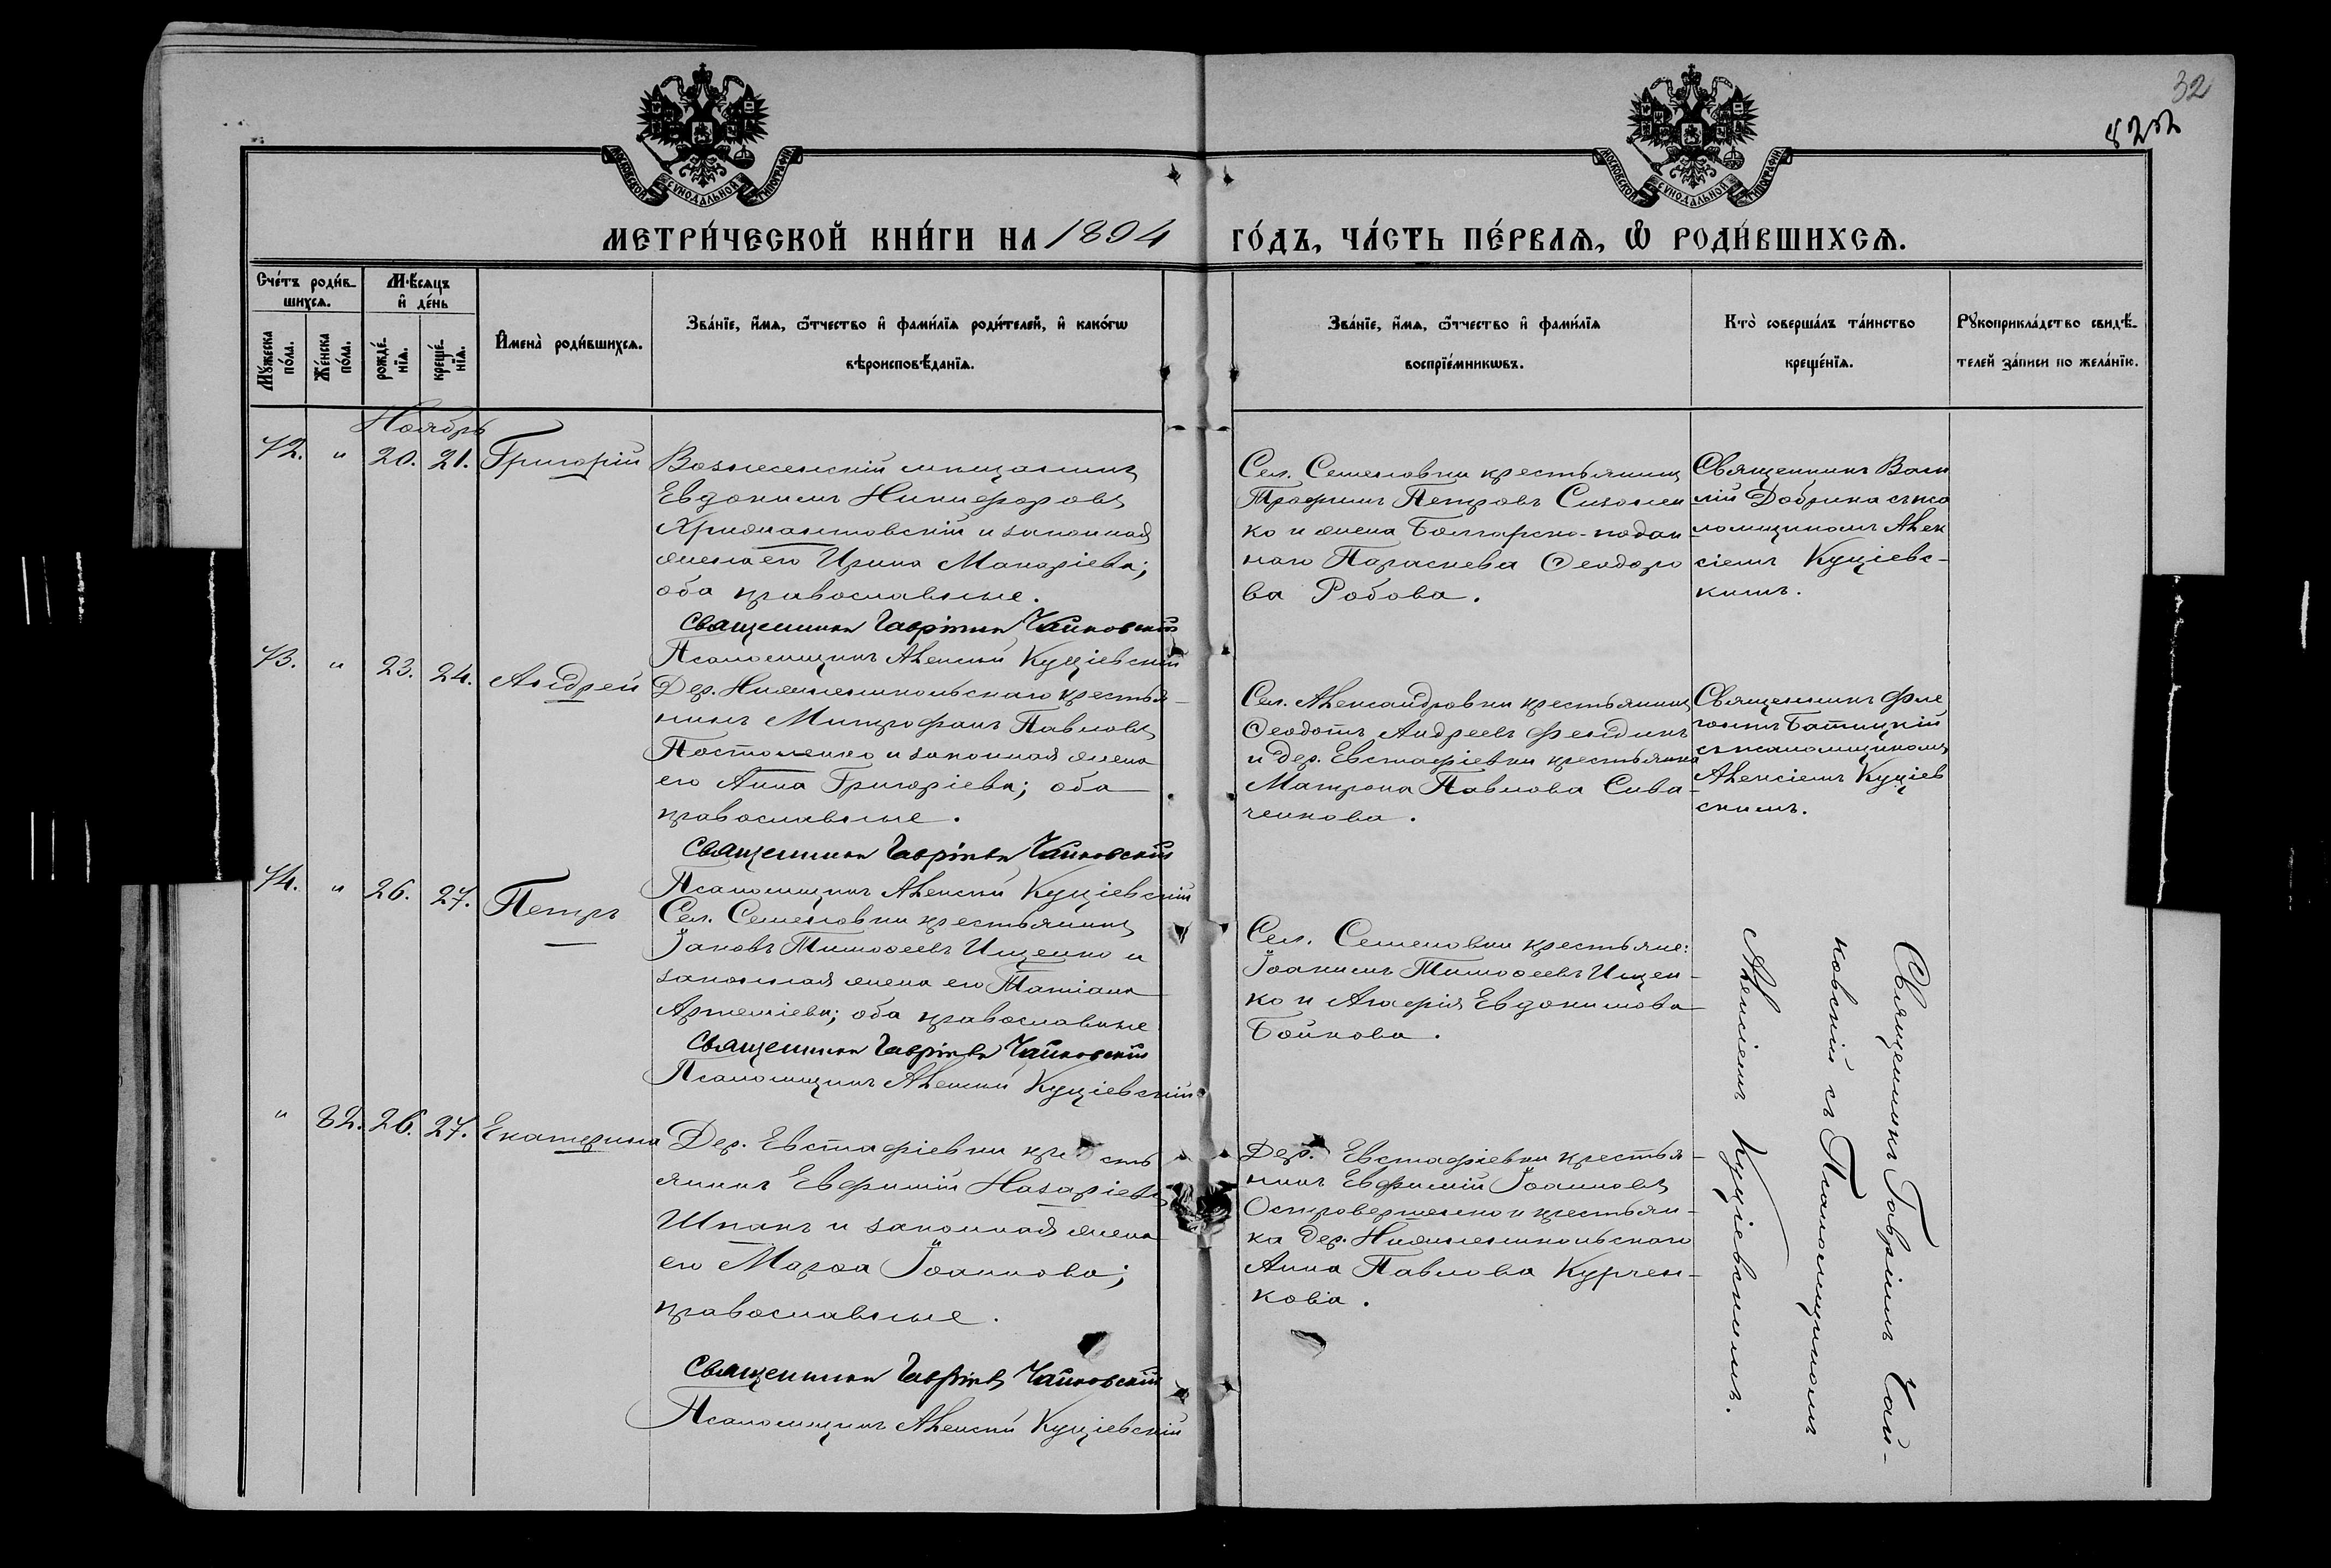 32
822
МОСКОВСКОЙ СѴНОДАЛЬНОЙ ТИПОГРАФІИ
МОСКОВСКОЙ СѴНОДАЛЬНОЙ ТИПОГРАФІИ
МЕТРИ́ЧЕСКОЙ КНИ́ГИ НА 1894 ГО́ДЪ, ЧА́СТЬ ПЕ́РВАѦ, Ѡ РОДИ́ВШИХСѦ.
Сче́тъ роди́вшихсѧ.
Мꙋ́жеска по́ла.
Же́нска по́ла.
Мѣ́сѧцъ и҆ де́нь
рожде́нїѧ.
креще́нїѧ.
И҆мена̀ роди́вшихсѧ.
Зва́нїе, и҆́мѧ, ѻ҆́тчество и҆ фами́лїѧ роди́телей, и҆ како́гѡ
вѣроисповѣ́данїѧ.
Зва́нїе, и҆́мѧ, ѻ҆́тчество и҆ фами́лїѧ
воспрїе́мникѡвъ.
Кто̀ соверша́лъ та́инство
креще́нїѧ.
Рꙋкоприкла́дство свидѣ́-
телей за́писи по жела́нїю.
Ноябрь
72. " 20. 21. Григорій
Вознесенскій мещанинъ
Евдокимъ Никифоровъ
Хрионантовскій и законная
жена его Ирина Макаріева;
оба православные.
Священникъ Гавріилъ Чайковскій
Псаломщикъ Алексій Куціевскій
Сел. Семеновки крестьянинъ
Трофимъ Петровъ Сизонен
ко и жена Болгарско-подан
наго Параскева Ѳеодоро
ва Робова.
Священникъ Васи
лій Добрина съ пса
ломщикомъ Алек
сіемъ Куціевс-
кимъ.
73. " 23. 24. Андрей
Дер. Нижнешкольскаго крестья-
нинъ Митрофанъ Павловъ
Постоленко и законная жена
его Анна Григоріева; оба
православные.
Священникъ Гавріилъ Чайковскій
Псаломщикъ Алексій Куціевскій
Сел. Александровки крестьянинъ
Ѳеодотъ Андреевъ Фендикъ
и дер. Евстафіевки крестьянка
Матрона Павлова Сива-
ченкова.
Священникъ Фле
гонтъ Батицкій
съ псаломщикомъ
Алексіемъ Куціев
скимъ.
74. " 26. 27. Петръ
Сел. Семеновки крестьянинъ
Іаковъ Тимоѳеевъ Ищенко и
законная жена его Татіана
Артеміева; оба православные
Священникъ Гавріилъ Чайковскій
Псаломщикъ Алексій Куціевскій
Сел. Семеновки крестьяне:
Іоакимъ Тимоѳеевъ Ищен-
ко и Агафія Евдокимова
Бойкова.
Священникъ Гавріилъ Чай-
ковскій съ Псаломщикомъ
Алексіемъ Куціевскимъ.
" 82. 26. 27. Екатерина
Дер. Евстафіевки кресть
янинъ Евфимій Назаріевъ
Шпакъ и законная жена
его Марѳа Іоаннова;
православные.
Священникъ Гавріилъ Чайковскій
Псаломщикъ Алексій Куціевскій
Дер. Евстафіевки крестья-
нинъ Евфимій Іоанновъ
Островерженко и крестьян-
ка дер. Нижнешкольскаго
Анна Павлова Курчен-
кова.